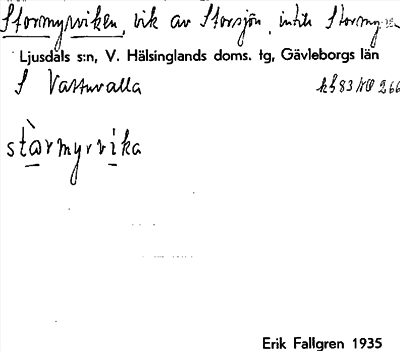 Stormyrviken, vik av Storsjön, intill Stormyren
Ljusdals s:n, V. Hälsinglands doms. tg, Gävleborgs län
S Vattuvalla
stòrmyrvika
Erik Fallgren 1935